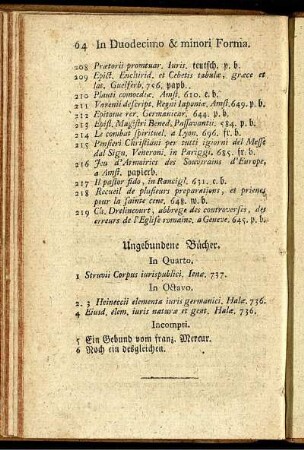 64 In Duodecimo & minori Forma.
208 Prætorii promtuar. Iuris, teutsch, p. b.
209 Epict. Enchirid, et Cebetis tabula, græce et
lat. Guelferb, 756, papb.
210 Plauti comoediæ, Amst. 610. c. b.
211 Varenii descript. Regni Iaponiæ, Amst. 649. p. b.
212 Epitome rer. Germanicar, 644. p. b.
213 Epist. Magistri Bened. Passavantii, 554. p. b.
214 Le combat spirituel, a Lyon. 696. fr. b.
215 Pensieri Christiani per tutti igiorni del Messe
dal Sign. Veneroni, in Pariggi, 635. fr. b.
216 Jeu d'Armoiries des Souverains d'Europe,
a Amst. papierb.
217 Il pastor fido, in Rancigl. 631. c. b.
218 Recueil de plusieurs preparations, et prieres
pour la sainte cene, 648. w. b.
219 Ch. Drelincourt, abbrege des controverses, des
erreurs de l'Eglise romaine, a Geneve, 645. p. b.
Ungebundene Bücher.
In Quarto.
1 Struvii Corpus iurispublici, Ienæ, 737.
In Octavo.
2. 3 Heineccii elementa iuris germanici, Halæ, 736.
4 Eiusd. elem. iuris naturæ et gent, Halæ, 736.
Incompti.
5 Ein Gebund vom franz. Mercur.
6 Noch ein desgleichen.